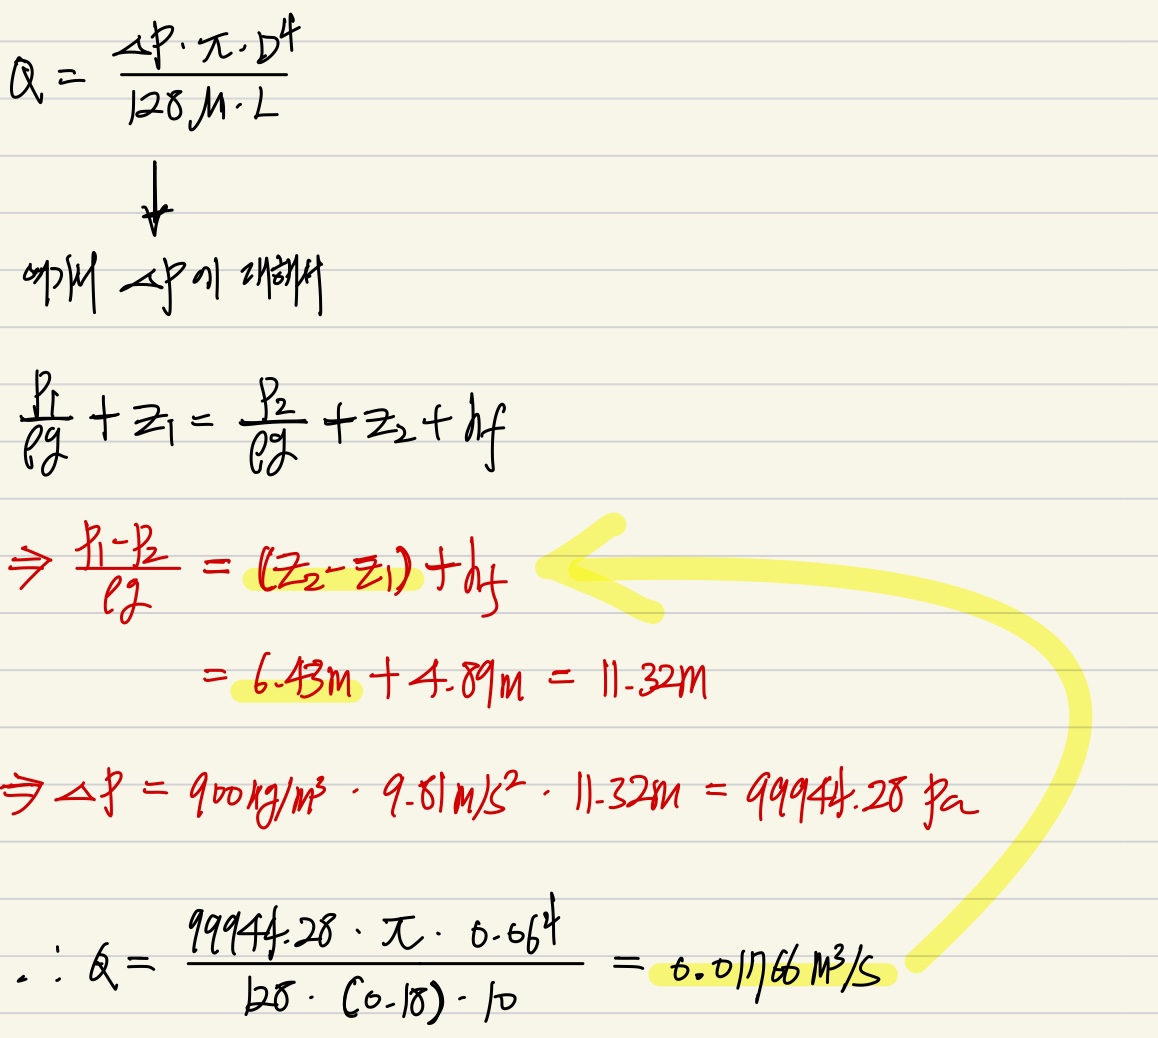 Q = ΔP·π·D⁴ / 128μ·L
↓
여기서 ΔP에 대해서
P₁/ρg + Z₁ = P₂/ρg + Z₂ + hf
⇒ P₁-P₂/ρg = (Z₂-Z₁) + hf
= 6.43m + 4.89m = 11.32m
⇒ ΔP = 900kg/m³ · 9.81m/s² · 11.32m = 99944.28 Pa
∴ Q = 99944.28 · π · 0.06⁴ / 128 · (0.18) · 10 = 0.01766 m³/s